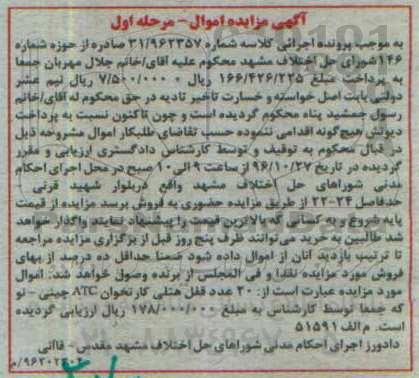 آگهی مزایده اموال - مرحله اول
به موجب پرونده اجرائی کلاسه شماره ۳۱/۹۶۲۳۵۷ صادره از حوزه شماره
۱۴۶ شورای حل اختلاف مشهد محکوم علیه آقای/خانم جلال مهربان جمعا
به پرداخت مبلغ ۱۶۶/۴۲۶/۲۲۵ ریال و ۷/۵۰۰/۰۰۰ ریال نیم عشر
دولتی بابت اصل خواسته و خسارت تأخیر تأدیه در حق محکوم له آقای/خانم
رسول جمشید پناه محکوم گردیده است و چون تاکنون نسبت به پرداخت
دیونش هیچ گونه اقدامی ننموده حسب تقاضای طلبکار اموال مشروحه ذیل
در قبال محکوم به توقیف و توسط کارشناس دادگستری ارزیابی و مقرر
گردیده در تاریخ ۹۶/۱۰/۲۷ از ساعت ۹ الی ۱۰ صبح در محل اجرای احکام
مدنی شوراهای حل اختلاف مشهد واقع دربلوار شهید قرنی
حدفاصل ۲۴-۲۲ از طریق مزایده حضوری به فروش برسد مزایده از قیمت
پایه شروع و به کسانی که بالاترین قیمت را پیشنهاد نمایند واگذار خواهد
شد طالبین به خرید می توانند ظرف پنج روز قبل از برگزاری مزایده مراجعه
تا ترتیب بازدید آنان از اموال داده شود ضمنا حداقل ده درصد از بهای
فروش مورد مزایده نقدا و فی المجلس از برنده وصول خواهد شد. اموال
مورد مزایده عبارت است از: ۲۰ عدد قفل هتلی کارتخوان ATC چینی - نو
که جمعا توسط کارشناس به مبلغ ۱۷۸/۰۰۰/۰۰۰ ریال ارزیابی گردیده
است. م الف ۵۱۵۹۱
دادورز اجرای احکام مدنی شوراهای حل اختلاف مشهد مقدس - قاانی